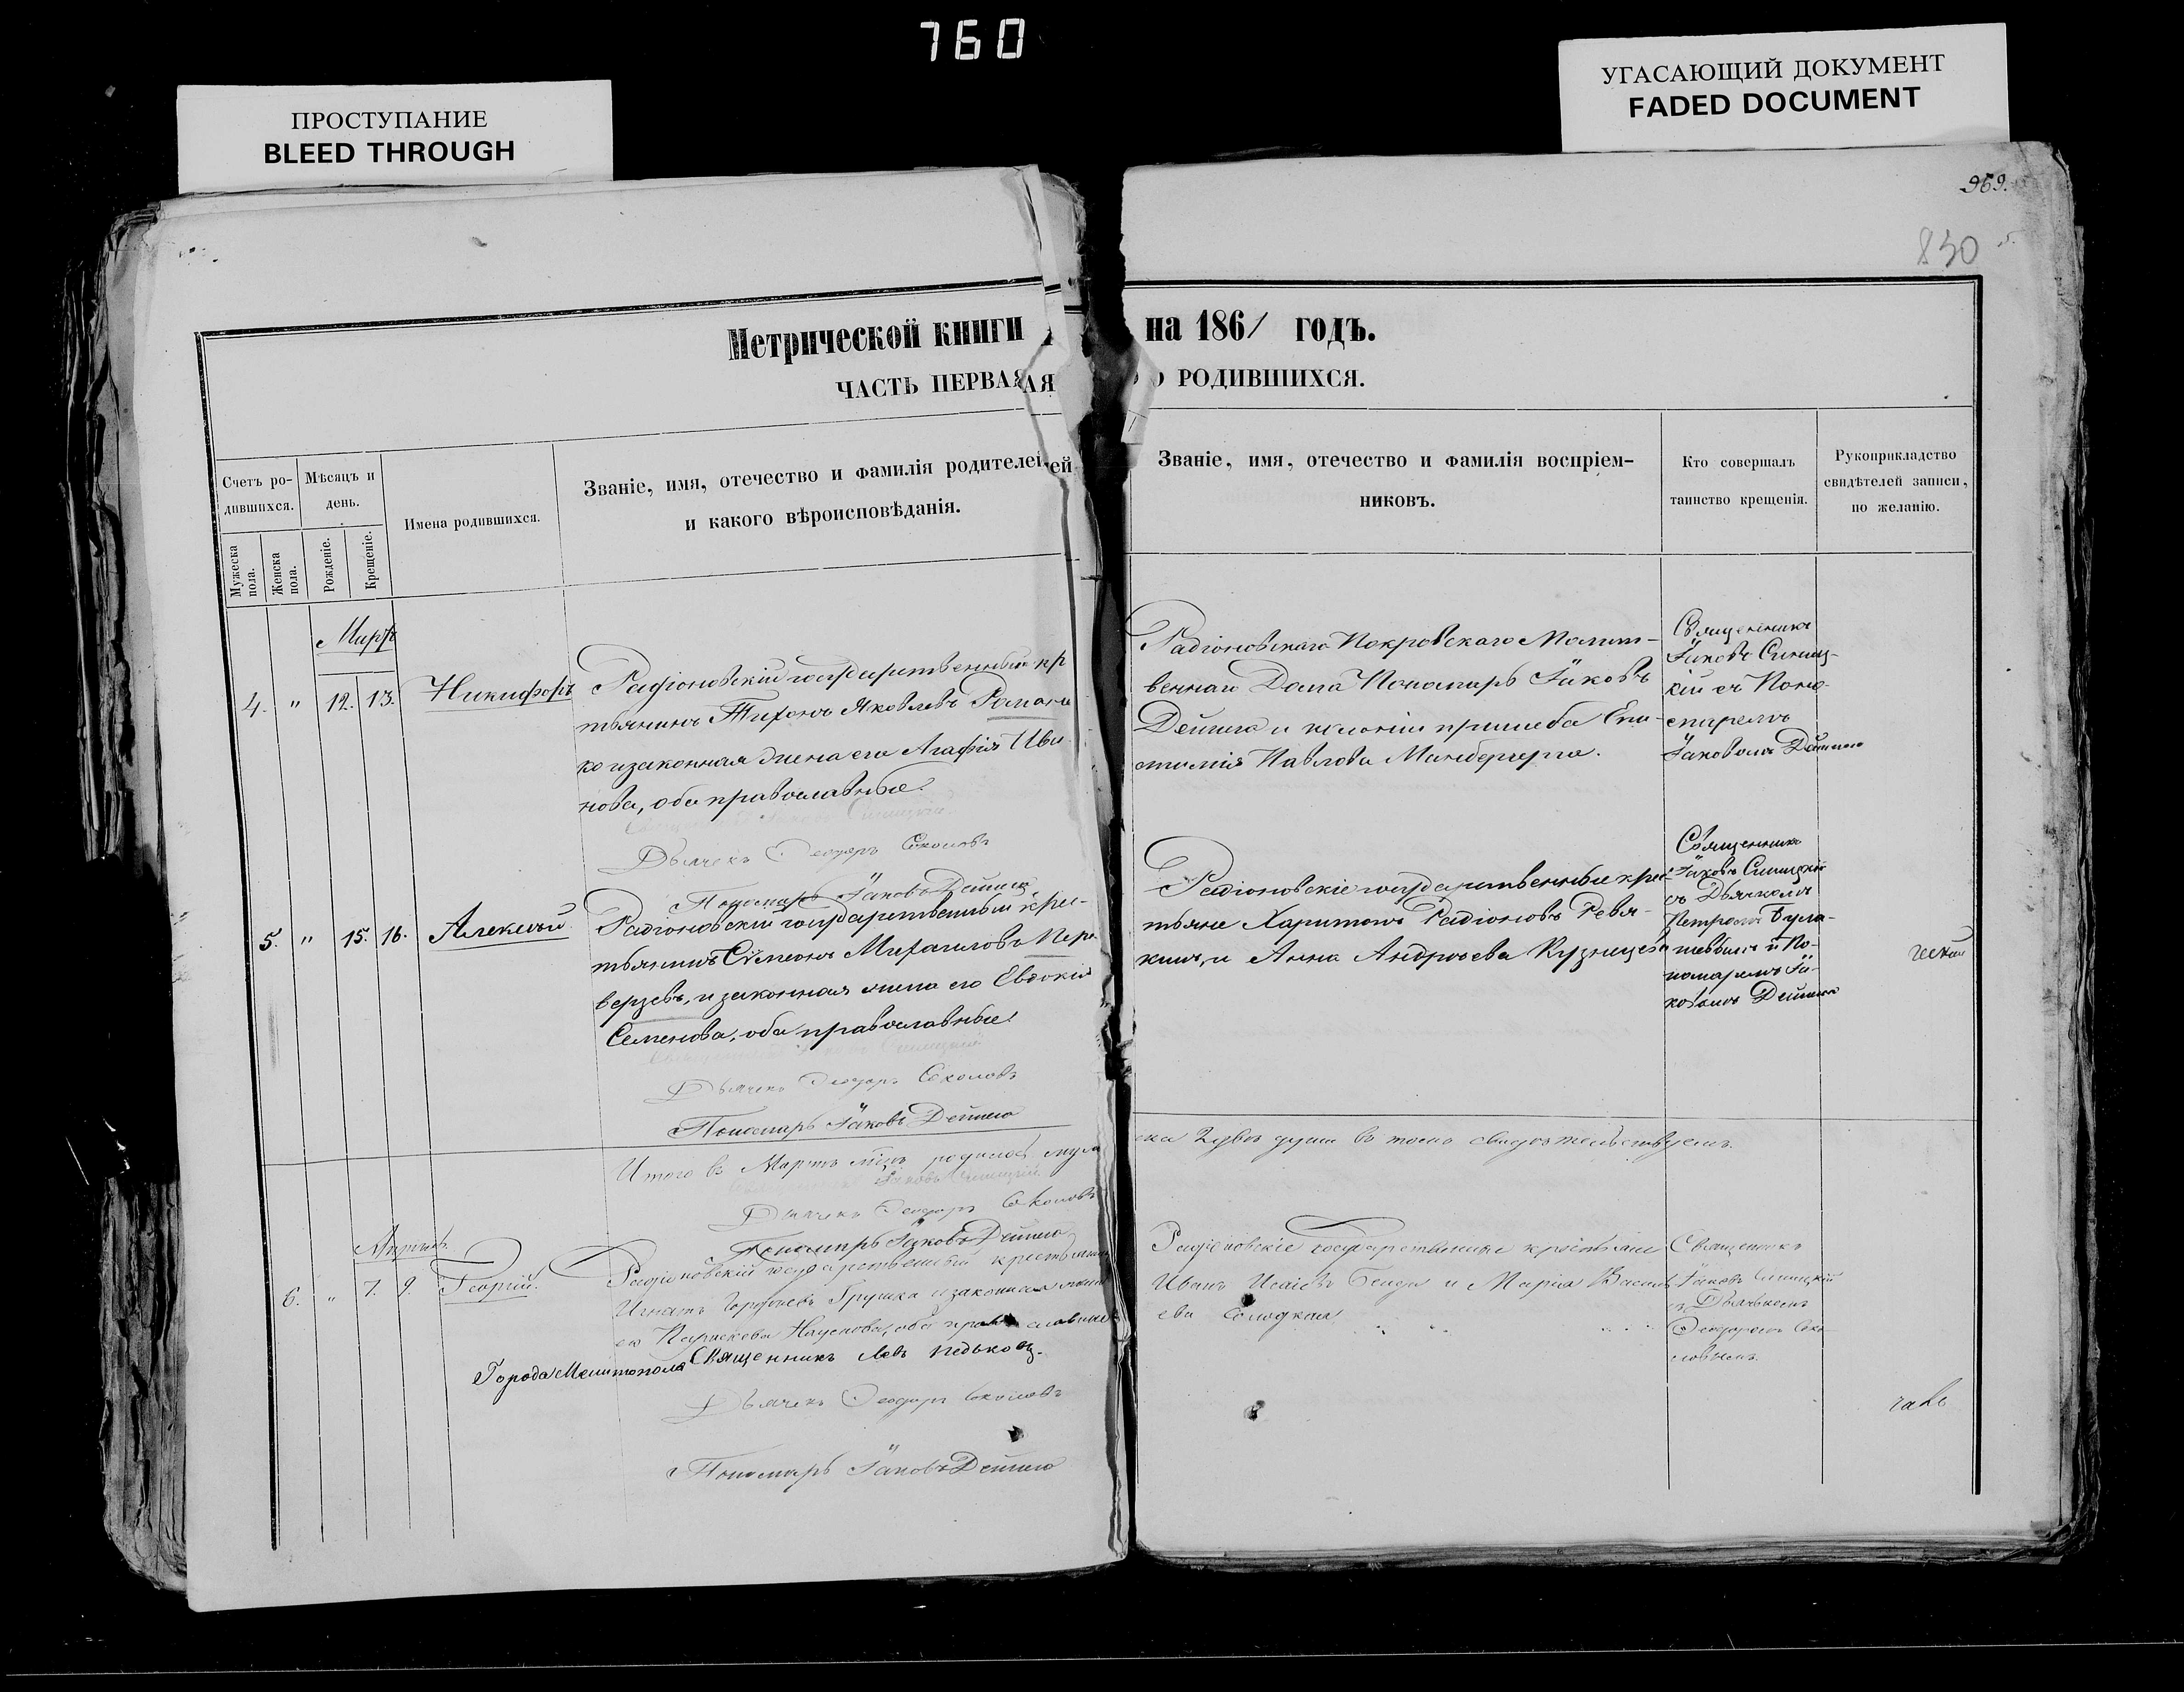 760
ПРОСТУПАНИЕ
BLEED THROUGH
УГАСАЮЩИЙ ДОКУМЕНТ
FADED DOCUMENT
969.
830
Метрической книги на 1861 годъ.
ЧАСТЬ ПЕРВАЯ О РОДИВШИХСЯ.
Счетъ ро-
дившихся.
Мужеска пола.
Женска пола.
Мѣсяцъ и
день.
Рожденіе.
Крещеніе.
Имена родившихся.
Званіе, имя, отечество и фамилія родителей
и какого вѣроисповѣданія.
Званіе, имя, отечество и фамилія воспріем-
никовъ.
Кто совершалъ
таинство крещенія.
Рукоприкладство
свидѣтелей записи,
по желанію.
Мартъ
4. " 12. 13. Никифоръ
Радіоновскій государственный кр
тьянинъ Тихонъ Яковлевъ Романе
ко и законная жена его Агафія Ива
нова, оба православные.
Дьячекъ Ѳеодоръ Соколовъ
Пономарь Іаковъ Дейнега
Радіоновскаго Покровскаго Молит-
веннаго Дома Пономарь Іаковъ
Дейнега и
Павлова
Священникъ
Іаковъ Синиц-
кій съ Поно-
маремъ
Іаковомъ Дейнегою
5. " 15. 16. Алексѣй
Радіоновскій государственный крес-
тьянинъ Сѵмеонъ Михаиловъ Пере
верзевъ, и законная жена его Евдокія
Семенова, оба православные.
Дьячекъ Ѳеодоръ Соколовъ
Пономарь Іаковъ Дейнега
Радіоновскіе государственные крес-
тьяне Харитонъ Радіоновъ Ревя-
кинъ, и Анна Андреева Кузнецова
Священникъ
Іаковъ Синицкій
съ Дьячкомъ
Петромъ Була-
шевымъ и По-
номаремъ Іа-
ковомъ Дейнега
Итого въ Мартѣ мѣцѣ родилось муж
ска 2 двѣ души въ томъ свидѣтельствуемъ.
Дьячекъ Ѳеодоръ Соколовъ
Пономарь Іаковъ Дейнега
Апрѣль.
6. " 7. 9. Георгій.
Радіоновскій государственный крестьянинъ
Игнатъ Гордѣевъ Грушка и законная жена
его Параскева Наумова, оба православные
Города Мелитополя Священникъ Левъ
Дьячекъ Ѳеодоръ Соколовъ
Пономарь Іаковъ Дейнега
Радіоновскіе государственные крестьяне
Иванъ Исаіевъ и Марія Василь
ева Солодкая
Священникъ
Іаковъ Синицкій
съ Дьячкомъ
Ѳеодоромъ Соко-
ловымъ.